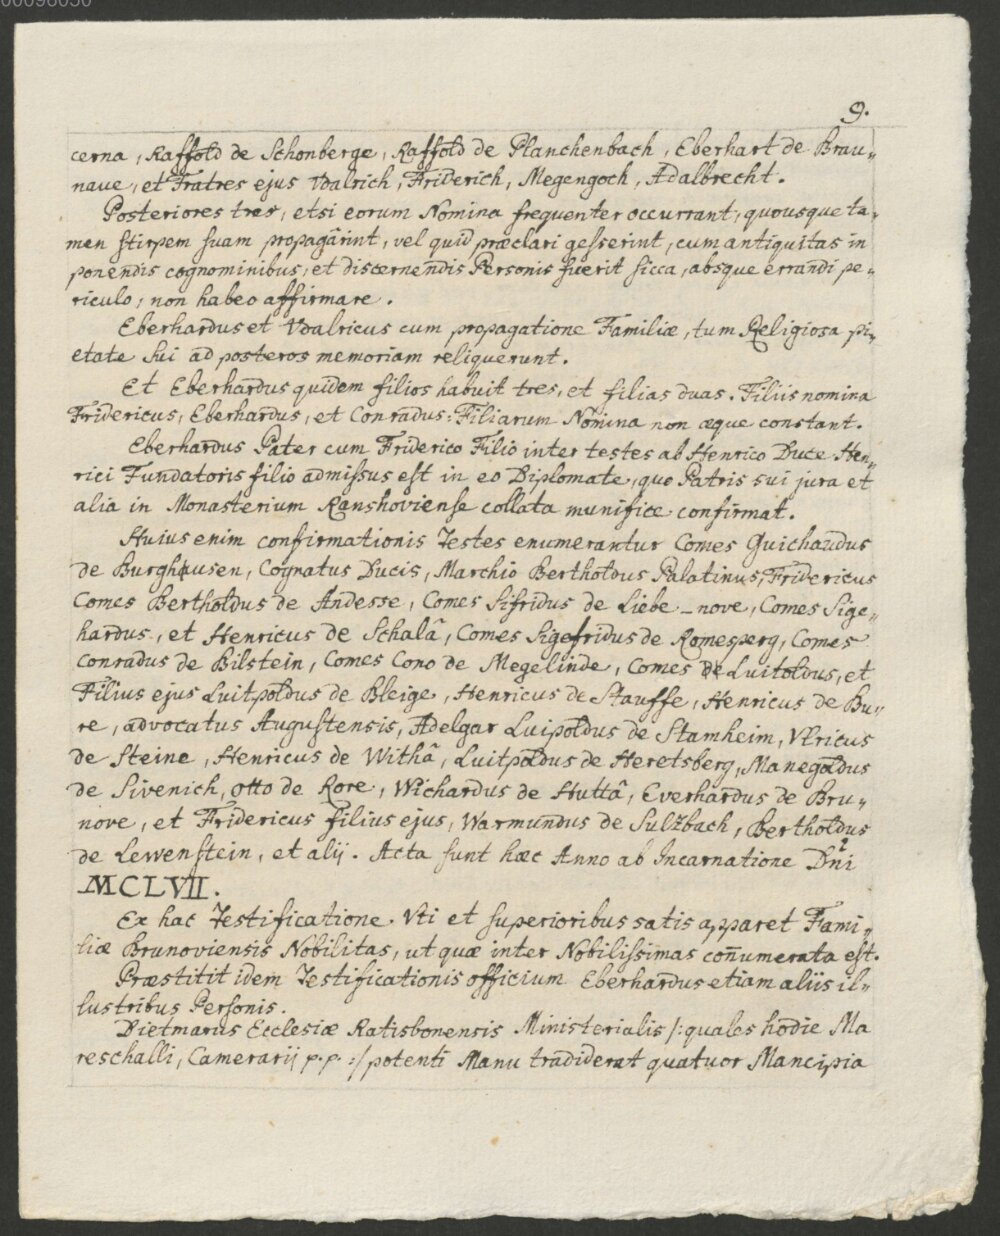 00096030
9.
cerna, Raffold de Schonberge, Raffold de Planchenbach, Eberhart de Brau„
naue, et Fratres ejus Vdalrich, Friderich, Megengoch, Adalbrecht.
Posteriores tres, etsi eorum Nomina frequenter occurrant, quousque ta„
men stirpem suam propagârint, vel quid præclari gesserint, cum antiquitas in
ponendis cognominibus, et discernendis Personis fuerit sicca, absque errandi pe„
riculo, non habeo affirmare.
Eberhardus et Vdalricus cum propagatione Familiæ, tum Religiosa pi„
etate sui ad posteros memoriam reliquerunt.
Et Eberhardus quidem filios habuit tres, et filias duas. Filiis nomina
Fridericus, Eberhardus, et Conradus: Filiarum Nomina non æque constant.
Eberhardus Pater cum Friderico Filio inter testes ab Henrico Duce Hen„
rici Fundatoris filio admissus est in eo Diplomate, quo Patris sui jura et
alia in Monasterium Ranshoviense collata munifice confirmat.
Huius enim confirmationis Testes enumerantur Comes Guichardus
de Burghausen, Cognatus Ducis, Marchio Bertholdus Palatinus, Fridericus
Comes Bertholdus de Andesse, Comes Sifridus de Liebe_nove, Comes Sige„
hardus, et Henricus de Schalâ, Comes Sigefridus de Romesperg, Comes
Conradus de Bilstein, Comes Cono de Megelinde, Comes de Luitoldus, et
Filius ejus Luitpoldus de Bleige, Henricus de Stauffe, Henricus de Bu„
re, advocatus Augustensis, Adelgar Luipoldus de Stamheim, Vlricus
de Steine, Henricus de Withâ, Luitpoldus de Heretsberg, Manegoldus
de Sivenich, Otto de Rore, Wichardus de Huttâ, Everhardus de Bru„
nove, et Fridericus filius ejus, Warmundus de Sulzbach, Bertholdus
de Lewenstein, et alij. Acta sunt hæc Anno ab Incarnatione Dni
MCLVII.
Ex hac Testificatione Vti et superioribus satis apparet Fami„
liæ Brunoviensis Nobilitas, ut quæ inter Nobilissimas coñumerata est.
Præstitit idem Testificationis officium Eberhardus etiam aliis il„
lustribus Personis.
Dietmarus Ecclesiæ Ratisbonensis Ministerialis /: quales hodie Ma
reschalli, Camerarij p.p. :/ potenti Manu tradiderat quatuor Mancipia